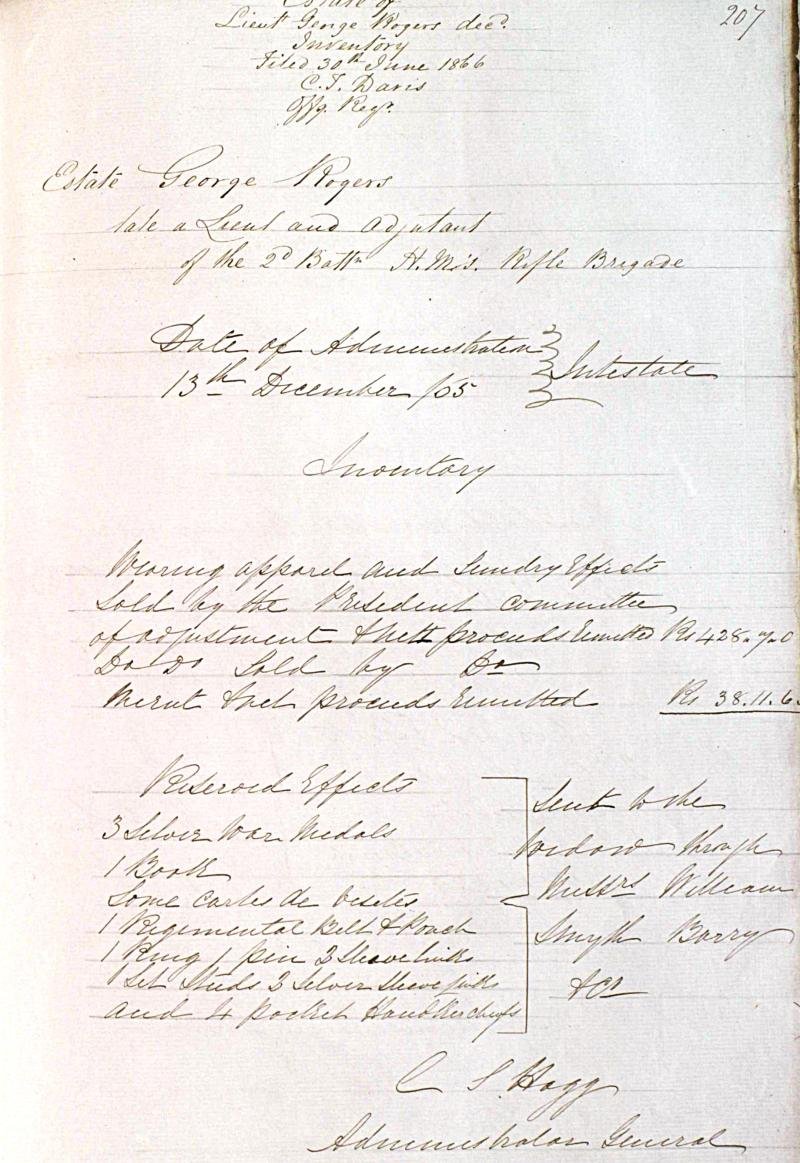 207
Estate of
Lieut George Rogers decd.
Inventory
Filed 30th June 1866
C. T. Davis
Offg. Regr.
Estate George Rogers
late a Lieut and Adjutant
of the 2d Battn H.M's. Rifle Brigade
Date of Administration
13th December /65
Intestate
Inventory
Wearing apparel and Sundry Effects
Sold by the President committee
of adjustment & nett proceeds remitted Rs 428.7.0
Do Do Sold by Do
Merut & net proceeds remitted Rs 38.11.6
Reserved Effects
3 Silver War Medals
1 Book
Some cartes de visites
1 Regimental Belt & Pouch
1 Ring 1 pin 2 Sleeve links
1 Set Studs 2 Silver Sleeve links
and 4 pocket Handkerchiefs
Sent to the
widow through
Messrs William
Smyth Barry
& Co
C S. Hogg
Administrator General